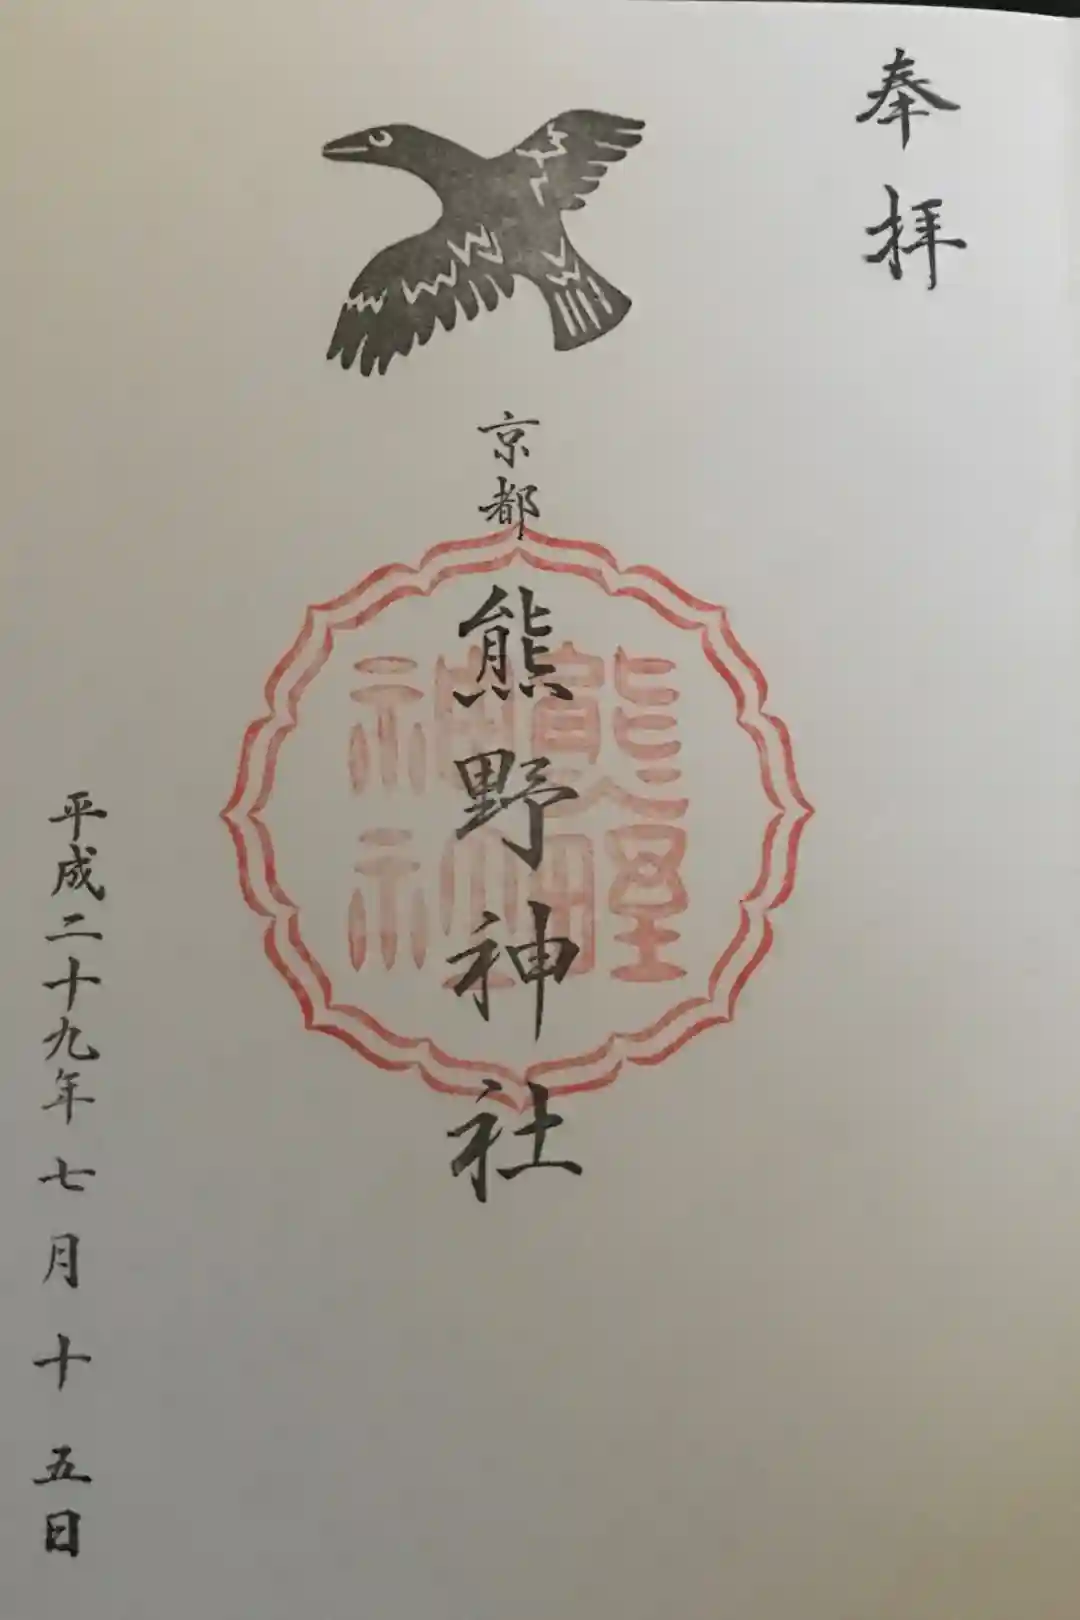 奉拝
京都
熊野神社
熊野神社
平成二十九年七月十五日